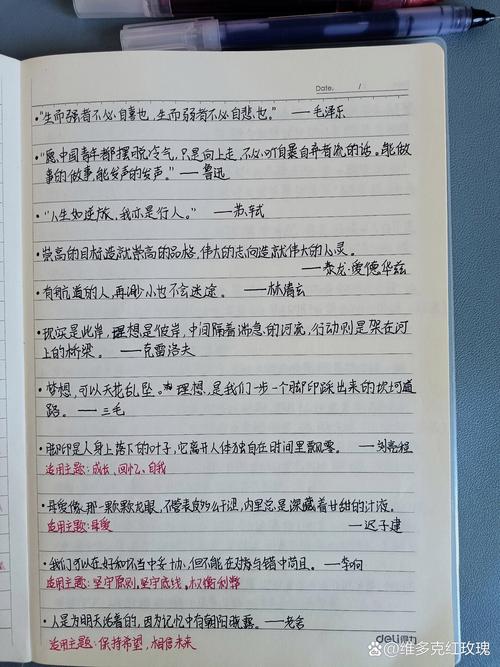 Date. /
•"生而强者不必自喜也,生而弱者不必自悲也。" ——毛泽东
•"愿中国青年都摆脱冷气,只是向上走,不必听自暴自弃者流的话。能做
事的做事,能发声的发声。" ——鲁迅
•"人生如逆旅,我亦是行人。" ——苏轼
崇高的目标造就崇高的品格,伟大的志向造就伟大的心灵。
——泰龙·爱德华兹
•有航道的人,再渺小也不会迷途。 ——林清玄
•现实是此岸,理想是彼岸,中间隔着湍急的河流,行动则是架在河
上的桥梁。 ——克雷洛夫
•梦想,可以天花乱坠。理想,是我们一步一个脚印踩出来的坎坷道
路。 ——三毛
•脚印是人身上落下的叶子,它离开人体独自在时间里飘零。 ——刘亮程
适用主题:成长、回忆、自我
•母爱像那一颗颗龙眼,不管表皮多么干涩,内里总是深藏着甘甜的汁液。
适用主题:母爱 ——迟子建
•我们可以在好和坏当中妥协,但不能在对与错中苟且。 ——李响
适用主题:坚守原则,坚守底线,权衡利弊
•人是为明天活着的,因为记忆中有朝阳晓露。 ——老舍
适用主题:保持希望,相信未来
deli得力
@维多克红玫瑰